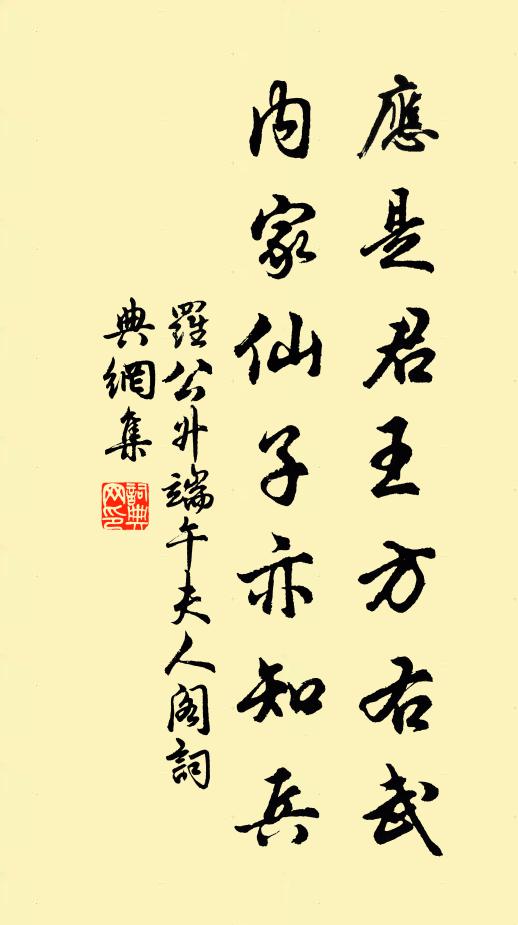 應是君王方右武
内家仙子亦知兵
羅公升端午夫人阁詞
典網集
詞典网印